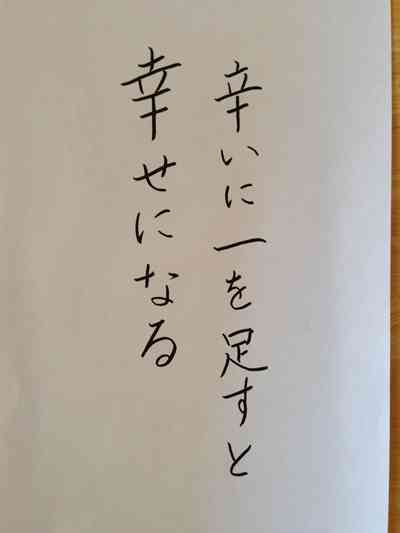 辛いに一を足すと
幸せになる